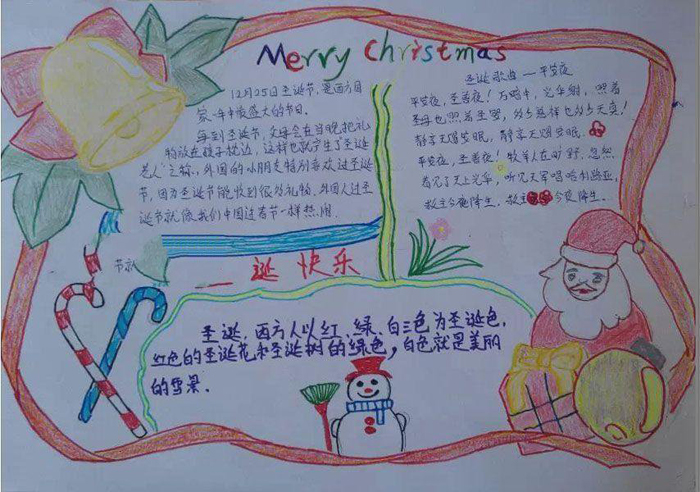 Merry Christmas
12月25日圣诞节,是西方国
家一年中最盛大的节日。
每到圣诞节,父母会在当晚把礼
物放在孩子枕边,这样也就产生了圣诞
老人之称,外国的小朋友特别喜欢过圣诞
节,因为圣诞节能收到很多礼物,外国人过圣
诞节就像我们中国过春节一样热闹.
圣诞歌曲——平安夜
平安夜,圣善夜!万暗中,光华射,照着
圣母也照着圣婴,多少慈祥也多少天真!
静享天赐安眠,静享天赐安眠.
平安夜,圣善夜!牧羊人在旷野,忽然
看见了天上光华,听见天军唱哈利路亚,
救主今夜降生,救主今夜降生.
节就
诞快乐
圣诞,西方人以红、绿、白三色为圣诞色,
红色的圣诞花和圣诞树的绿色,白色就是美丽
的雪景.